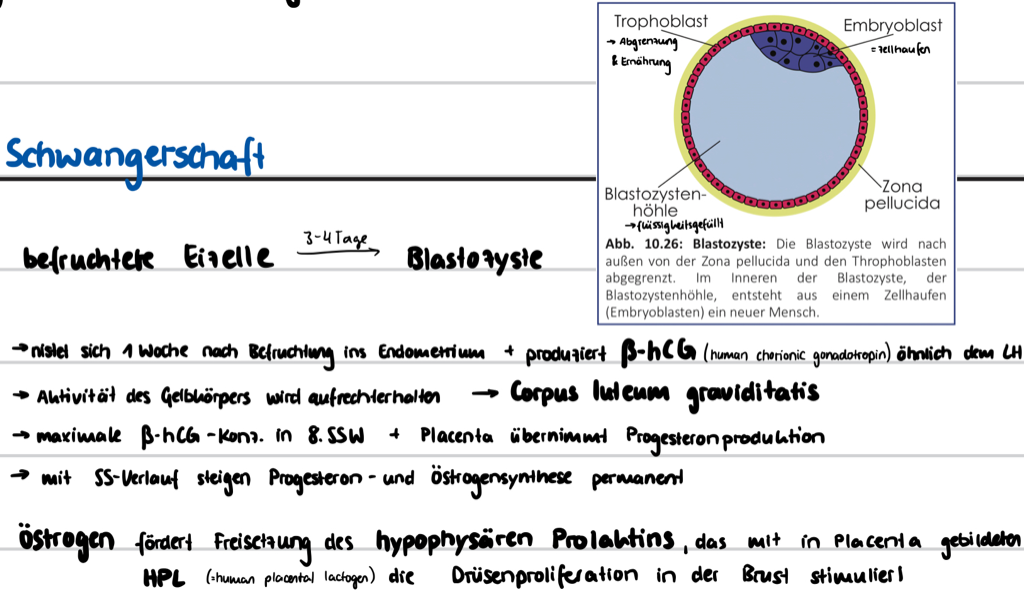 Trophoblast
→ Abgrenzung
& Ernährung
Embryoblast
= Zellhaufen
Schwangerschaft
Blastozysten-
höhle
→ flüssigkeitsgefüllt
Zona
pellucida
befruchtete Eizelle 3-4 Tage → Blastozyste
Abb. 10.26: Blastozyste: Die Blastozyste wird nach
außen von der Zona pellucida und den Throphoblasten
abgegrenzt. Im Inneren der Blastozyste, der
Blastozystenhöhle, entsteht aus einem Zellhaufen
(Embryoblasten) ein neuer Mensch.
→ nistet sich 1 Woche nach Befruchtung ins Endometrium + produziert β-hCG (human chorionic gonadotropin) ähnlich dem LH
→ Aktivität des Gelbkörpers wird aufrechterhalten → Corpus luteum graviditatis
→ maximale β-hCG-Konz. in 8. SSW + Placenta übernimmt Progesteronproduktion
→ mit SS-Verlauf steigen Progesteron- und Östrogensynthese permanent
Östrogen fördert Freisetzung des hypophysären Prolaktins, das mit in Placenta gebildeten
HPL (=human placental lactogen) die Drüsenproliferation in der Brust stimuliert